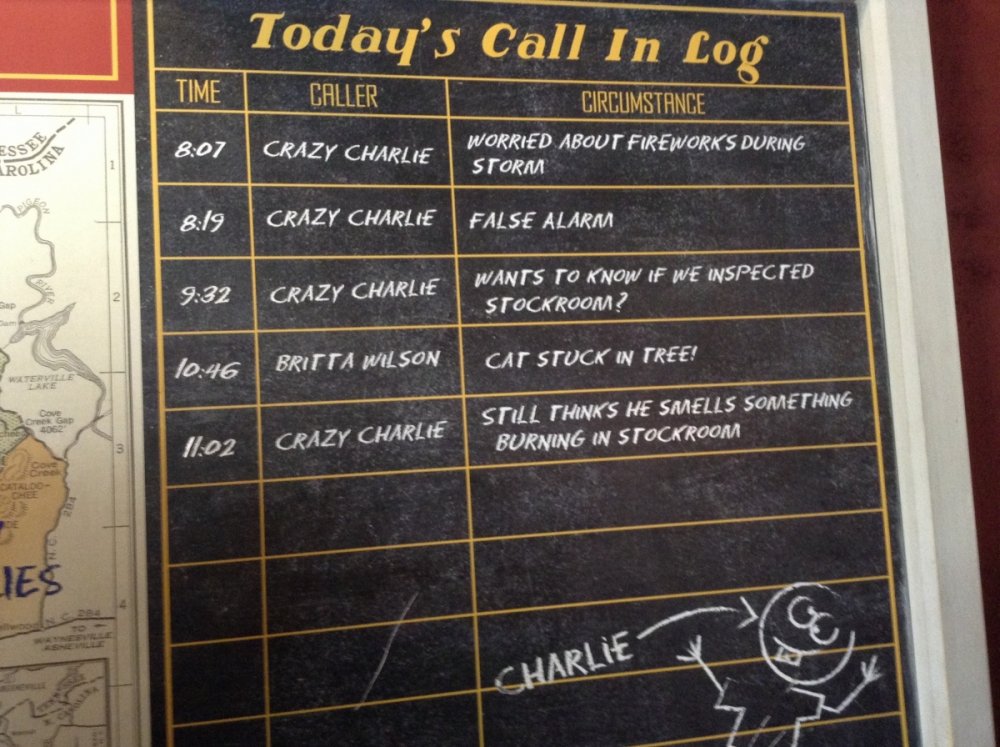 Today's Call In Log
TIME CALLER CIRCUMSTANCE
8:07 CRAZY CHARLIE WORRIED ABOUT FIREWORKS DURING
STORM
8:19 CRAZY CHARLIE FALSE ALARM
9:32 CRAZY CHARLIE WANTS TO KNOW IF WE INSPECTED
STOCKROOM?
10:46 BRITTA WILSON CAT STUCK IN TREE!
11:02 CRAZY CHARLIE STILL THINKS HE SMELLS SOMETHING
BURNING IN STOCKROOM
CHARLIE
L
ESSEE
AROLINA
1
PIGEON
RIVER
Gap
Dam
2
WATERVILLE
LAKE
Cove
Creek Gap
4062'
3
Cove
Creek
CATALOO-
CHEE
284
N.C.
IES
4
N. C. 284
TO
WAYNESVILLE
ASHEVILLE
TENNESSEE
N. CAROLINA